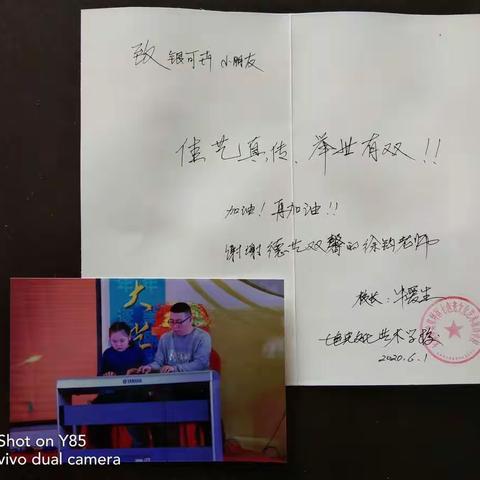 致 银可卉 小朋友
佳艺真传、举世有双!!
加油! 再加油!!
谢谢德艺双馨的徐钧老师
校长:
艺术学校
2020.6.1
大
YAMAHA
Shot on Y85
vivo dual camera